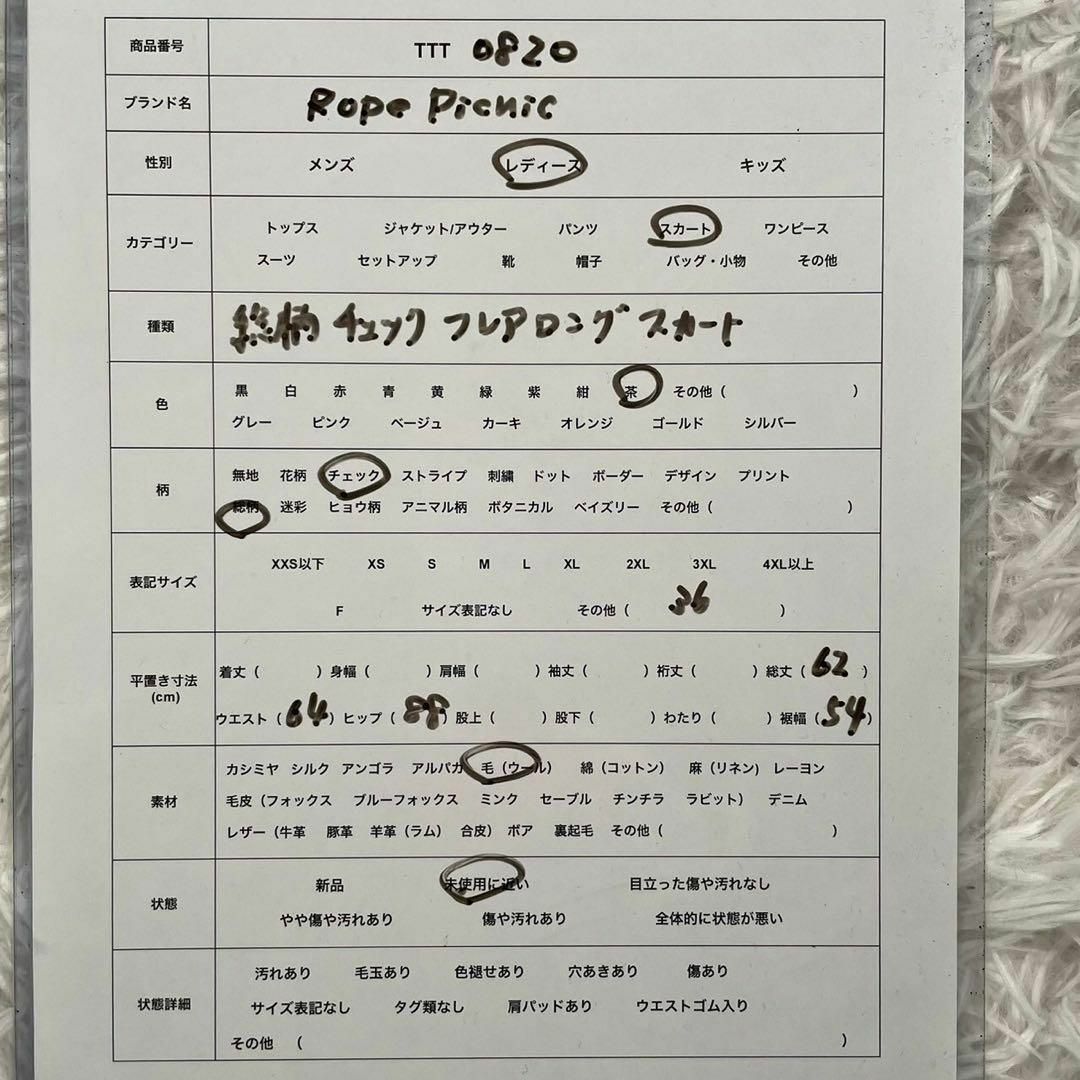 商品番号 TTT 0820
ブランド名 Rope Picnic
性別 メンズ レディース キッズ
カテゴリー トップス ジャケット/アウター パンツ スカート ワンピース
スーツ セットアップ 靴 帽子 バッグ・小物 その他
種類 総柄 チェック フレアロング スカート
色 黒 白 赤 青 黄 緑 紫 紺 茶 その他（ ）
グレー ピンク ベージュ カーキ オレンジ ゴールド シルバー
柄 無地 花柄 チェック ストライプ 刺繍 ドット ボーダー デザイン プリント
総柄 迷彩 ヒョウ柄 アニマル柄 ボタニカル ペイズリー その他（ ）
表記サイズ XXS以下 XS S M L XL 2XL 3XL 4XL以上
F サイズ表記なし その他（ 36 ）
平置き寸法 (cm) 着丈（ ）身幅（ ）肩幅（ ）袖丈（ ）裄丈（ ）総丈（62）
ウエスト（64）ヒップ（88）股上（ ）股下（ ）わたり（ ）裾幅（54）
素材 カシミヤ シルク アンゴラ アルパカ 毛（ウール） 綿（コットン） 麻（リネン） レーヨン
毛皮（フォックス ブルーフォックス ミンク セーブル チンチラ ラビット） デニム
レザー（牛革 豚革 羊革（ラム） 合皮） ボア 裏起毛 その他（ ）
状態 新品 未使用に近い 目立った傷や汚れなし
やや傷や汚れあり 傷や汚れあり 全体的に状態が悪い
状態詳細 汚れあり 毛玉あり 色褪せあり 穴あきあり 傷あり
サイズ表記なし タグ類なし 肩パッドあり ウエストゴム入り
その他 （ ）